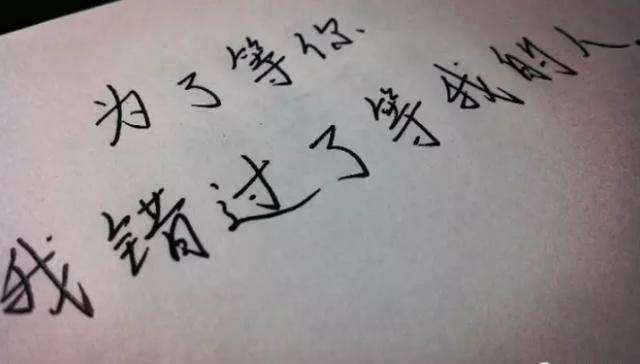 为了等你
我错过了等我的人.